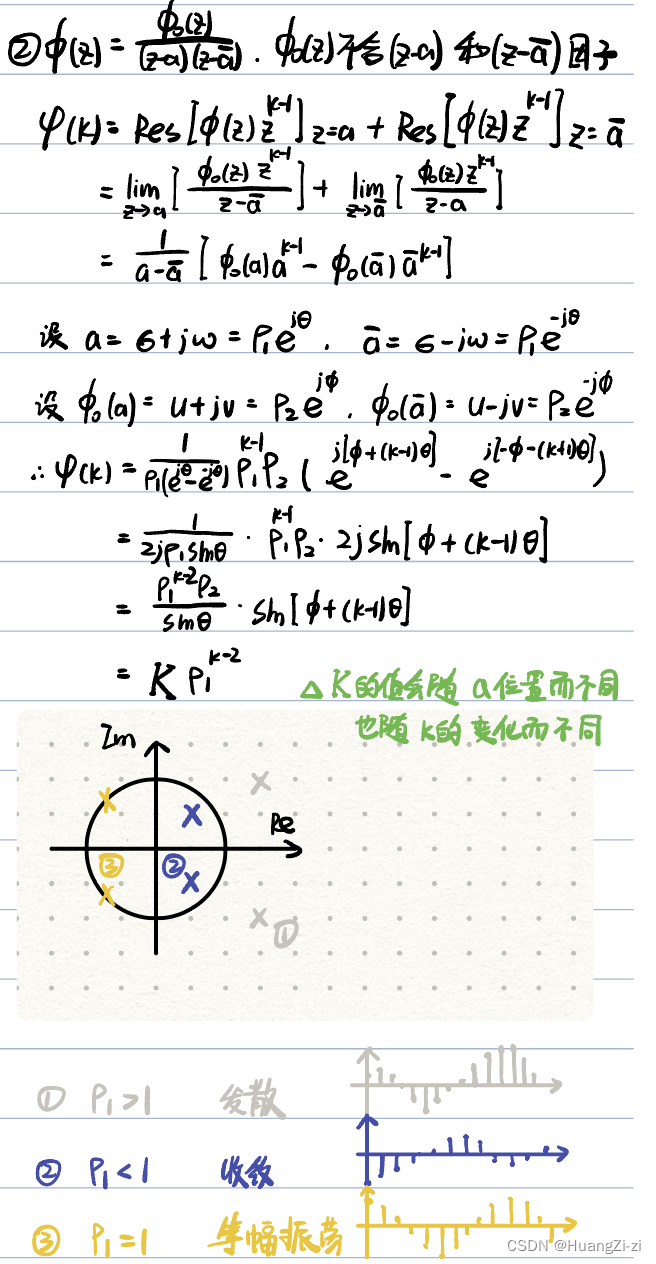 ② ϕ(z) = ϕ₀(z) / (z-a)(z-ā) . ϕ₀(z)不含(z-a) 和(z-ā)因子
φ(k) = Res[ϕ(z)z^{k-1}]_{z=a} + Res[ϕ(z)z^{k-1}]_{z=ā}
= lim_{z→a} [ϕ₀(z)z^{k-1} / z-ā] + lim_{z→ā} [ϕ₀(z)z^{k-1} / z-a]
= 1/(a-ā) [ϕ₀(a)a^{k-1} - ϕ₀(ā)ā^{k-1}]
设 a = σ+jω = P₁e^{jθ} . ā = σ-jω = P₁e^{-jθ}
设 ϕ₀(a) = u+jv = P₂e^{jϕ} . ϕ₀(ā) = u-jv = P₂e^{-jϕ}
∴ φ(k) = 1/(P₁(e^{jθ}-e^{-jθ})) P₁^{k-1}P₂ (e^{j[ϕ+(k-1)θ]} - e^{j[-ϕ-(k+1)θ]})
= 1/(2jP₁sinθ) · P₁^{k-1}P₂ · 2j sin[ϕ+(k-1)θ]
= P₁^{k-2}P₂/sinθ · sin[ϕ+(k-1)θ]
= K P₁^{k-2}
△ K的值会随 a位置而不同
也随 k的 变化而不同
Im
Re
③
②
①
① P₁>1 发散
② P₁<1 收敛
③ P₁=1 等幅振荡
CSDN @HuangZi-zi